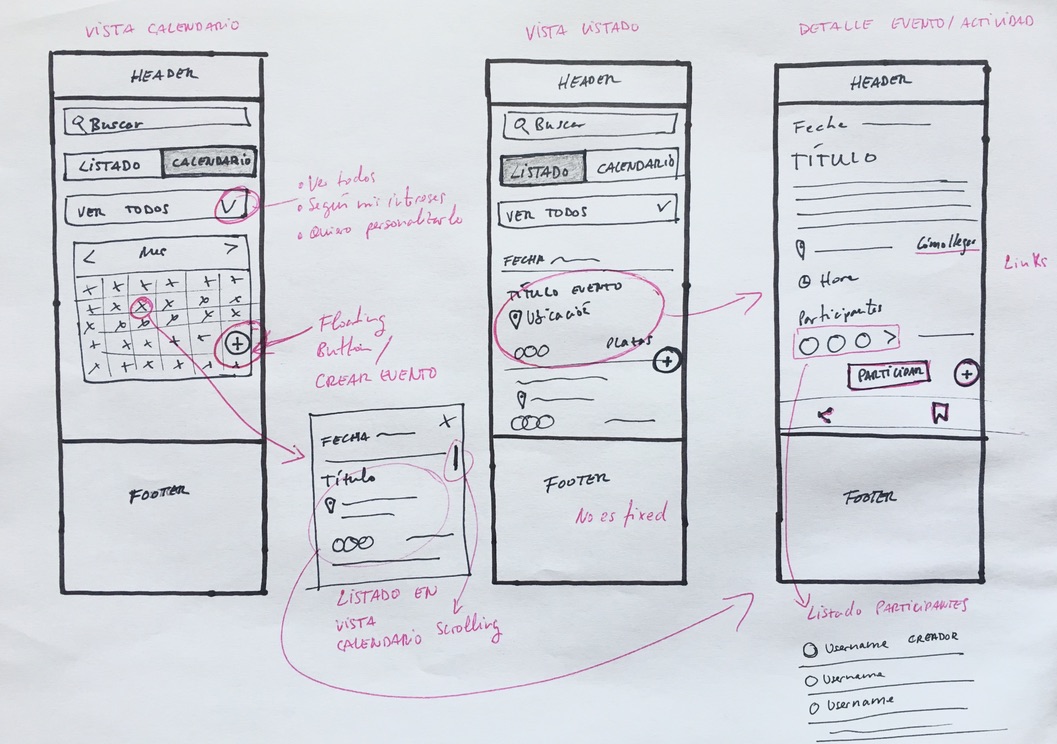 VISTA CALENDARIO
HEADER
Buscar
LISTADO
CALENDARIO
VER TODOS
Mes
FOOTER
• Ver todos
• Según mi intereses
• Quiero personalizarlo
Floating
Button /
CREAR EVENTO
FECHA
X
Título
LISTADO EN
VISTA
CALENDARIO
Scrolling
VISTA LISTADO
HEADER
Buscar
LISTADO
CALENDARIO
VER TODOS
FECHA
TÍTULO EVENTO
Ubicación
Plazas
+
FOOTER
No es fixed
DETALLE EVENTO / ACTIVIDAD
HEADER
Fecha
TÍTULO
Cómo llegar
Links
Hora
Participantes
PARTICIPAR
+
FOOTER
Listado PARTICIPANTES
Username CREADOR
Username
Username